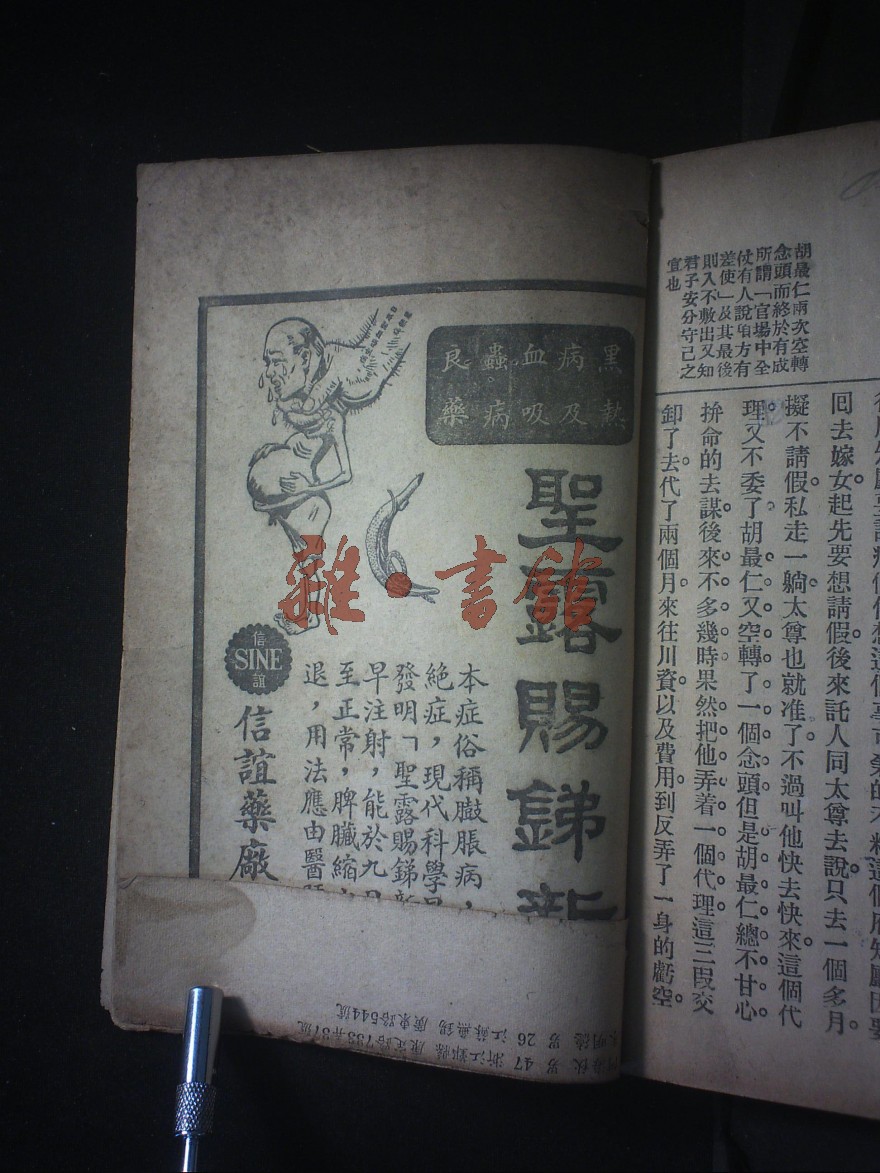 胡最仁兩次空轉
念頭而終於有成
所謂「官場中全
仗有人說項方有
差使」及其最後
則入不敷出又知
君子安分守己之
宜也
回去嫁女。起先要想請假。後來託人同太尊去說。只去一個多月。
擬不請假。私走一躺。太尊也就准了。不過叫他快去快來。這個代
理又不委了。胡最仁又空轉了一個念頭。但是胡最仁總不甘心。
拚命的去謀。後來不多幾時。果然把他弄着一個代理。這三段交
卸了去。代了兩個月。來往川資。以及費用。到反弄了一身的虧空。
黑熱病及血吸蟲病良藥
聖露賜銻新
本症俗稱臌脹病，
絕症，現代科學
發明「聖露賜銻新
早注射，能於九
至正常，脾臟縮
退，用法應由醫
信
SINE
誼
信誼藥廠
男 47 浙江鄞縣 康定路733弄87號
明德 男 26 江蘇無錫 廣東路544號
雜·書館